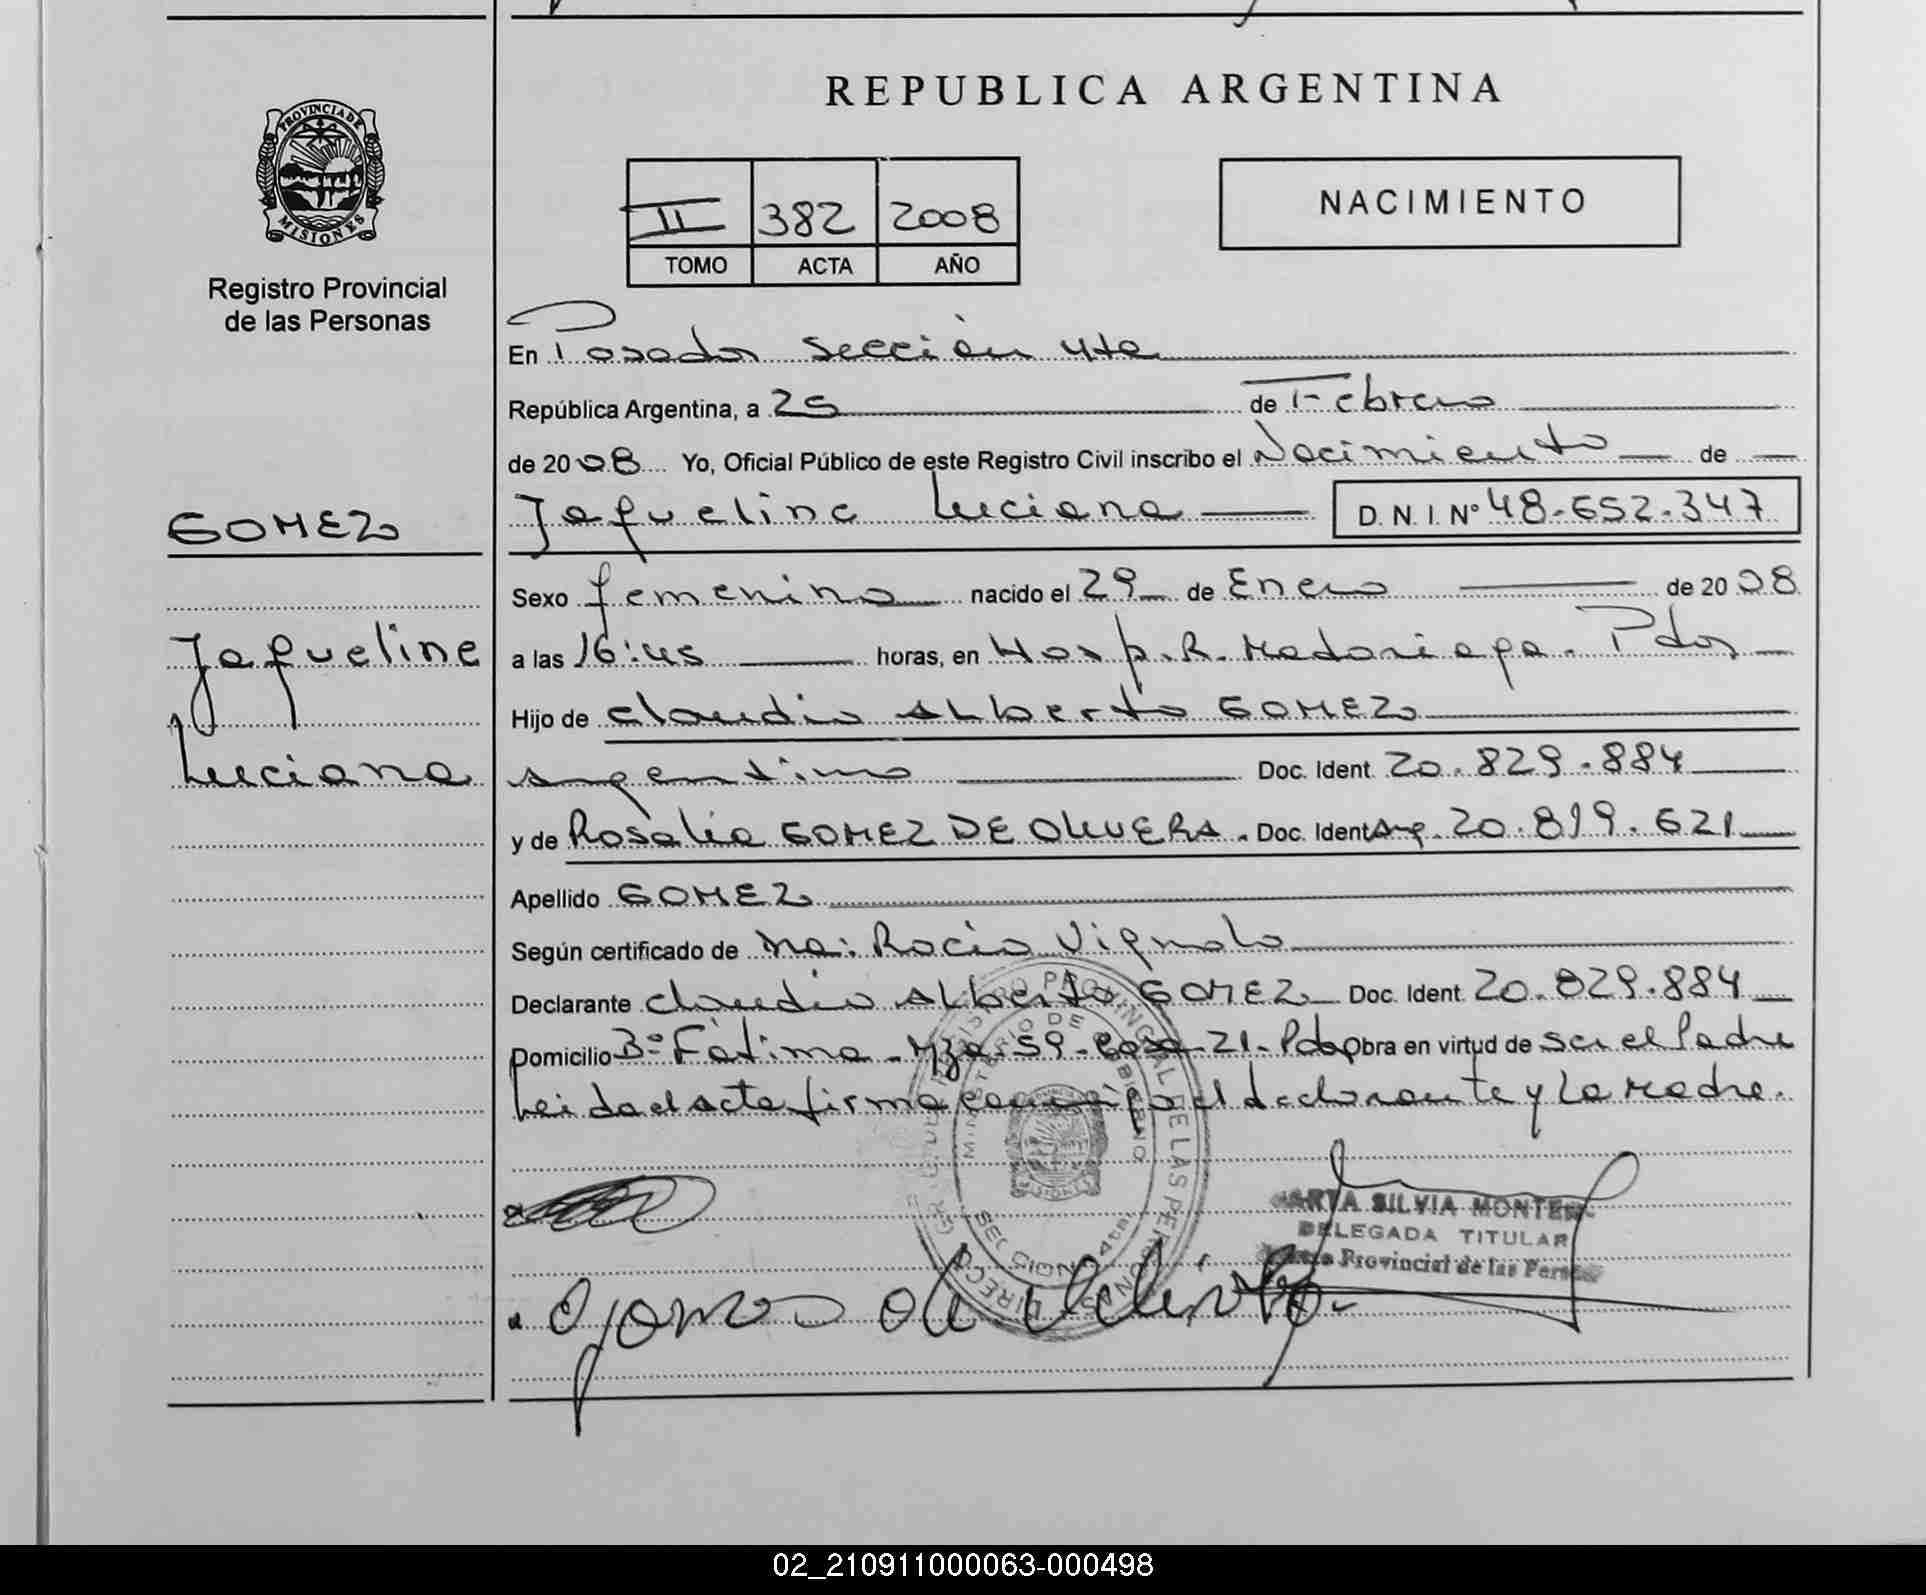 REPUBLICA ARGENTINA
PROVINCIA DE MISIONES
Registro Provincial
de las Personas
II 382 2008
TOMO ACTA AÑO
NACIMIENTO
En Posadas sección 4ta
República Argentina, a 25 de Febrero
de 2008 Yo, Oficial Público de este Registro Civil inscribo el Nacimiento de
GOMEZ
Jaqueline
Luciana
Jaqueline Luciana D.N.I. Nº 48.652.347
Sexo femenino nacido el 29 de Enero de 2008
a las 16:45 horas, en Hosp. R. Madariaga. Pdas
Hijo de Claudio Alberto GOMEZ
argentino Doc. Ident. 20.829.884
y de Rosalia GOMEZ DE OLIVERA. Doc. Ident Arg. 20.819.621
Apellido GOMEZ
Según certificado de Ma: Rocío Vignolo
Declarante Claudio Alberto GOMEZ Doc. Ident. 20.829.884
Domicilio Bº Fátima - Mza 59 - Casa 21 - Pdas Obra en virtud de ser el Padre
Leida el acta firma conmigo el declarante y la Madre.
MARTA SILVIA MONTE
DELEGADA TITULAR
Provincial de las Perso
02_210911000063-000498